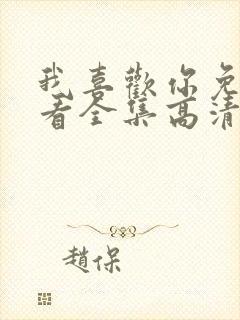 我喜歡你免
看全集高清
趙保